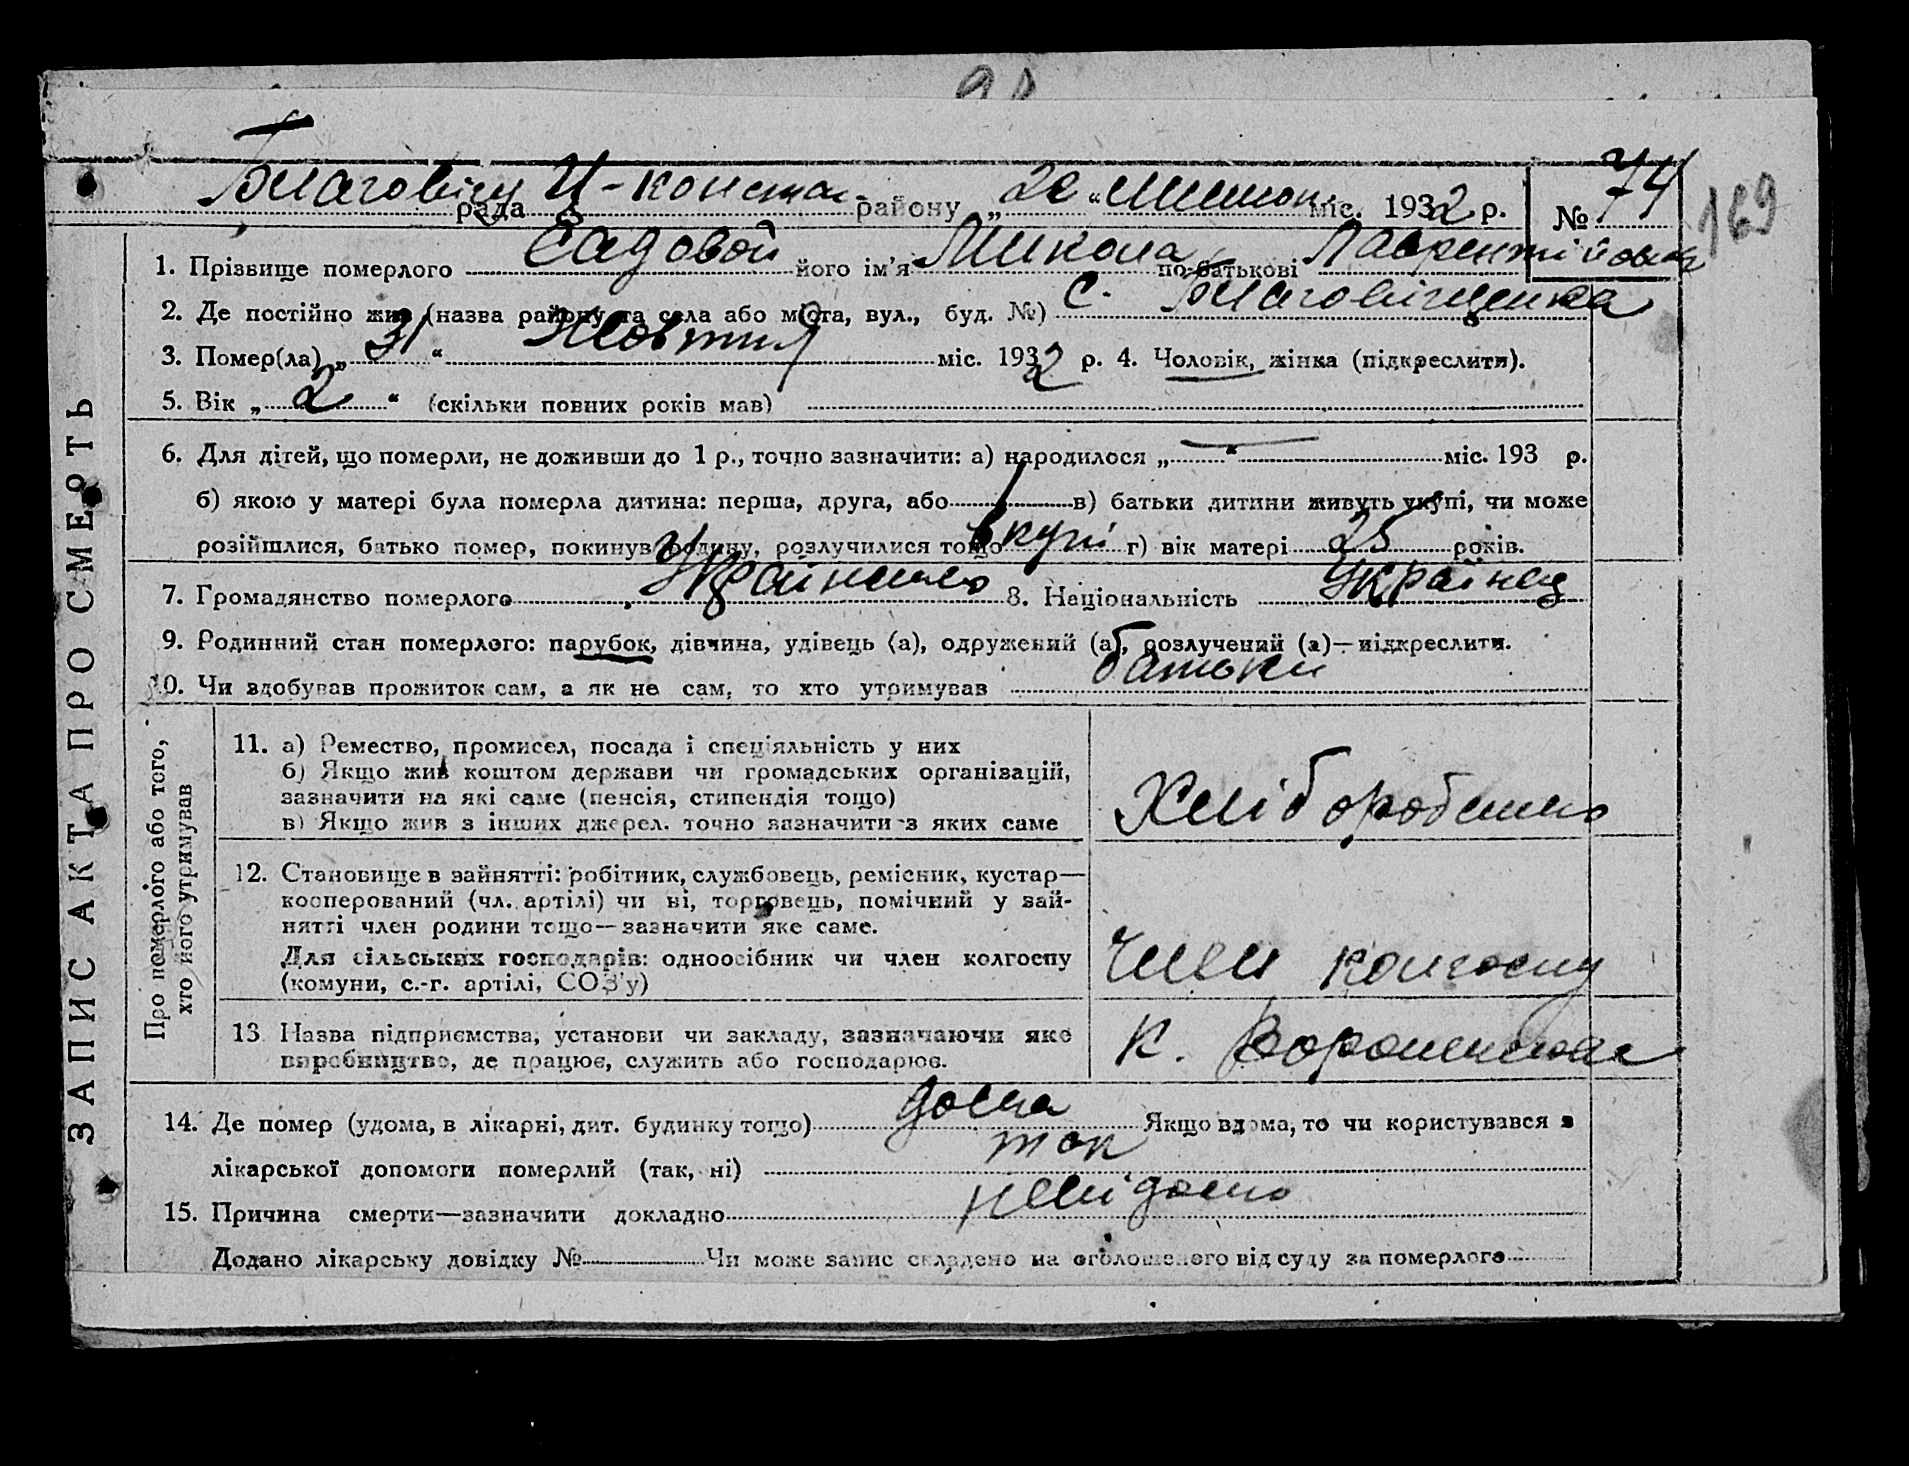 ЗАПИС АКТА ПРО СМЕРТЬ
Благовіщ рада Ц-констан району „20“ Листоп міс. 1932 р. № 74
169
1. Прізвище померлого Садовой його ім'я Микола по-батькові Лаврентійович
2. Де постійно жив (назва району та села або міста, вул., буд. №) с. Благовіщенка
3. Помер(ла) „31“ Жовтня міс. 1932 р. 4. Чоловік, жінка (підкреслити).
5. Вік „2“ (скільки повних років мав)
6. Для дітей, що померли, не доживши до 1 р., точно зазначити: а) народилося „—“ міс. 193 р.
б) якою у матері була померла дитина: перша, друга, або в) батьки дитини живуть укупі, чи може
розійшлися, батько помер, покинув родину, розлучилися тощо вкупі г) вік матері 25 років.
7. Громадянство померлого Українське 8. Національність Українец
9. Родинний стан померлого: парубок, дівчина, удівець (а), одружений (а), розлучений (а)—підкреслити.
10. Чи здобував прожиток сам, а як не сам, то хто утримував батьки
Про померлого або того, хто його утримував
11. а) Ремество, промисел, посада і спеціяльність у них
б) Якщо жив коштом держави чи громадських організацій,
зазначити на які саме (пенсія, стипендія тощо)
в) Якщо жив з інших джерел, точно зазначити з яких саме
Хліборобство
12. Становище в зайнятті: робітник, службовець, ремісник, кустар—
кооперований (чл. артілі) чи ні, торговець, помічний у зай-
нятті член родини тощо—зазначити яке саме.
Для сільських господарів: одноосібник чи член колгоспу
(комуни, с.-г. артілі, СОЗ'у)
Член колгоспу
13 Назва підприємства, установи чи закладу, зазначаючи яке
виробництво, де працює, служить або господарює.
К.
14. Де помер (удома, в лікарні, дит. будинку тощо) дома Якщо вдома, то чи користувався з
лікарської допомоги померлий (так, ні) так
15. Причина смерти—зазначити докладно невідомо
Додано лікарську довідку № Чи може запис складено на оголошеного від суду за померлого